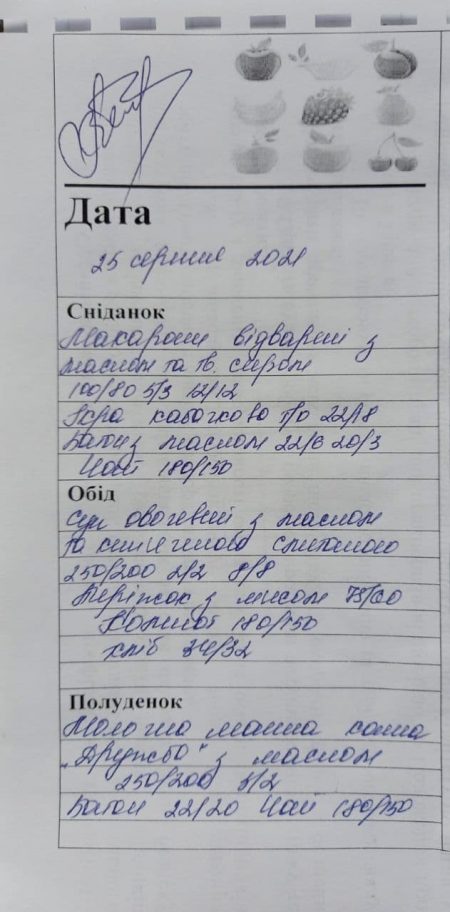 Дата
25 серпня 2021
Сніданок
Макарони відварні з
маслом та тв. сиром
100/80 5/3 12/12
Ікра кабачкова т/о 22/18
Батон з маслом 22/6 20/3
Чай 180/150
Обід
Суп овочевий з маслом
та кип'яченою сметаною
250/200 2/2 8/8
Пиріжок з мясом 75/60
Компот 180/150
хліб 34/32
Полуденок
Молочна манна каша
„Дружба" з маслом
250/200 3/2
Батон 22/20 Чай 180/150